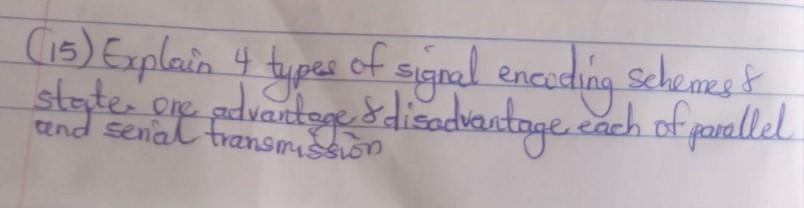 (15) Explain 4 types of signal encoding schemes &
state one advantage & disadvantage each of parallel
and serial transmission